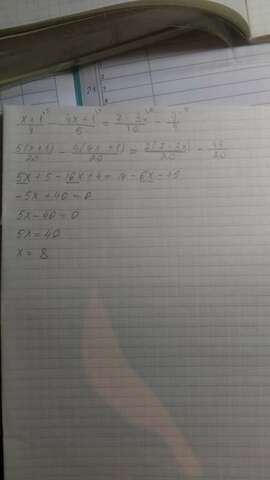 x+1/4 - 4x+1/5 = 7-3x/10 -
5(x+1)/20 - 4(4x+1)/20 = 2(7-3x)/20 -
5x+5-16x+4=14-6x-
-5x+40=0
5x-40=0
5x=40
x=8